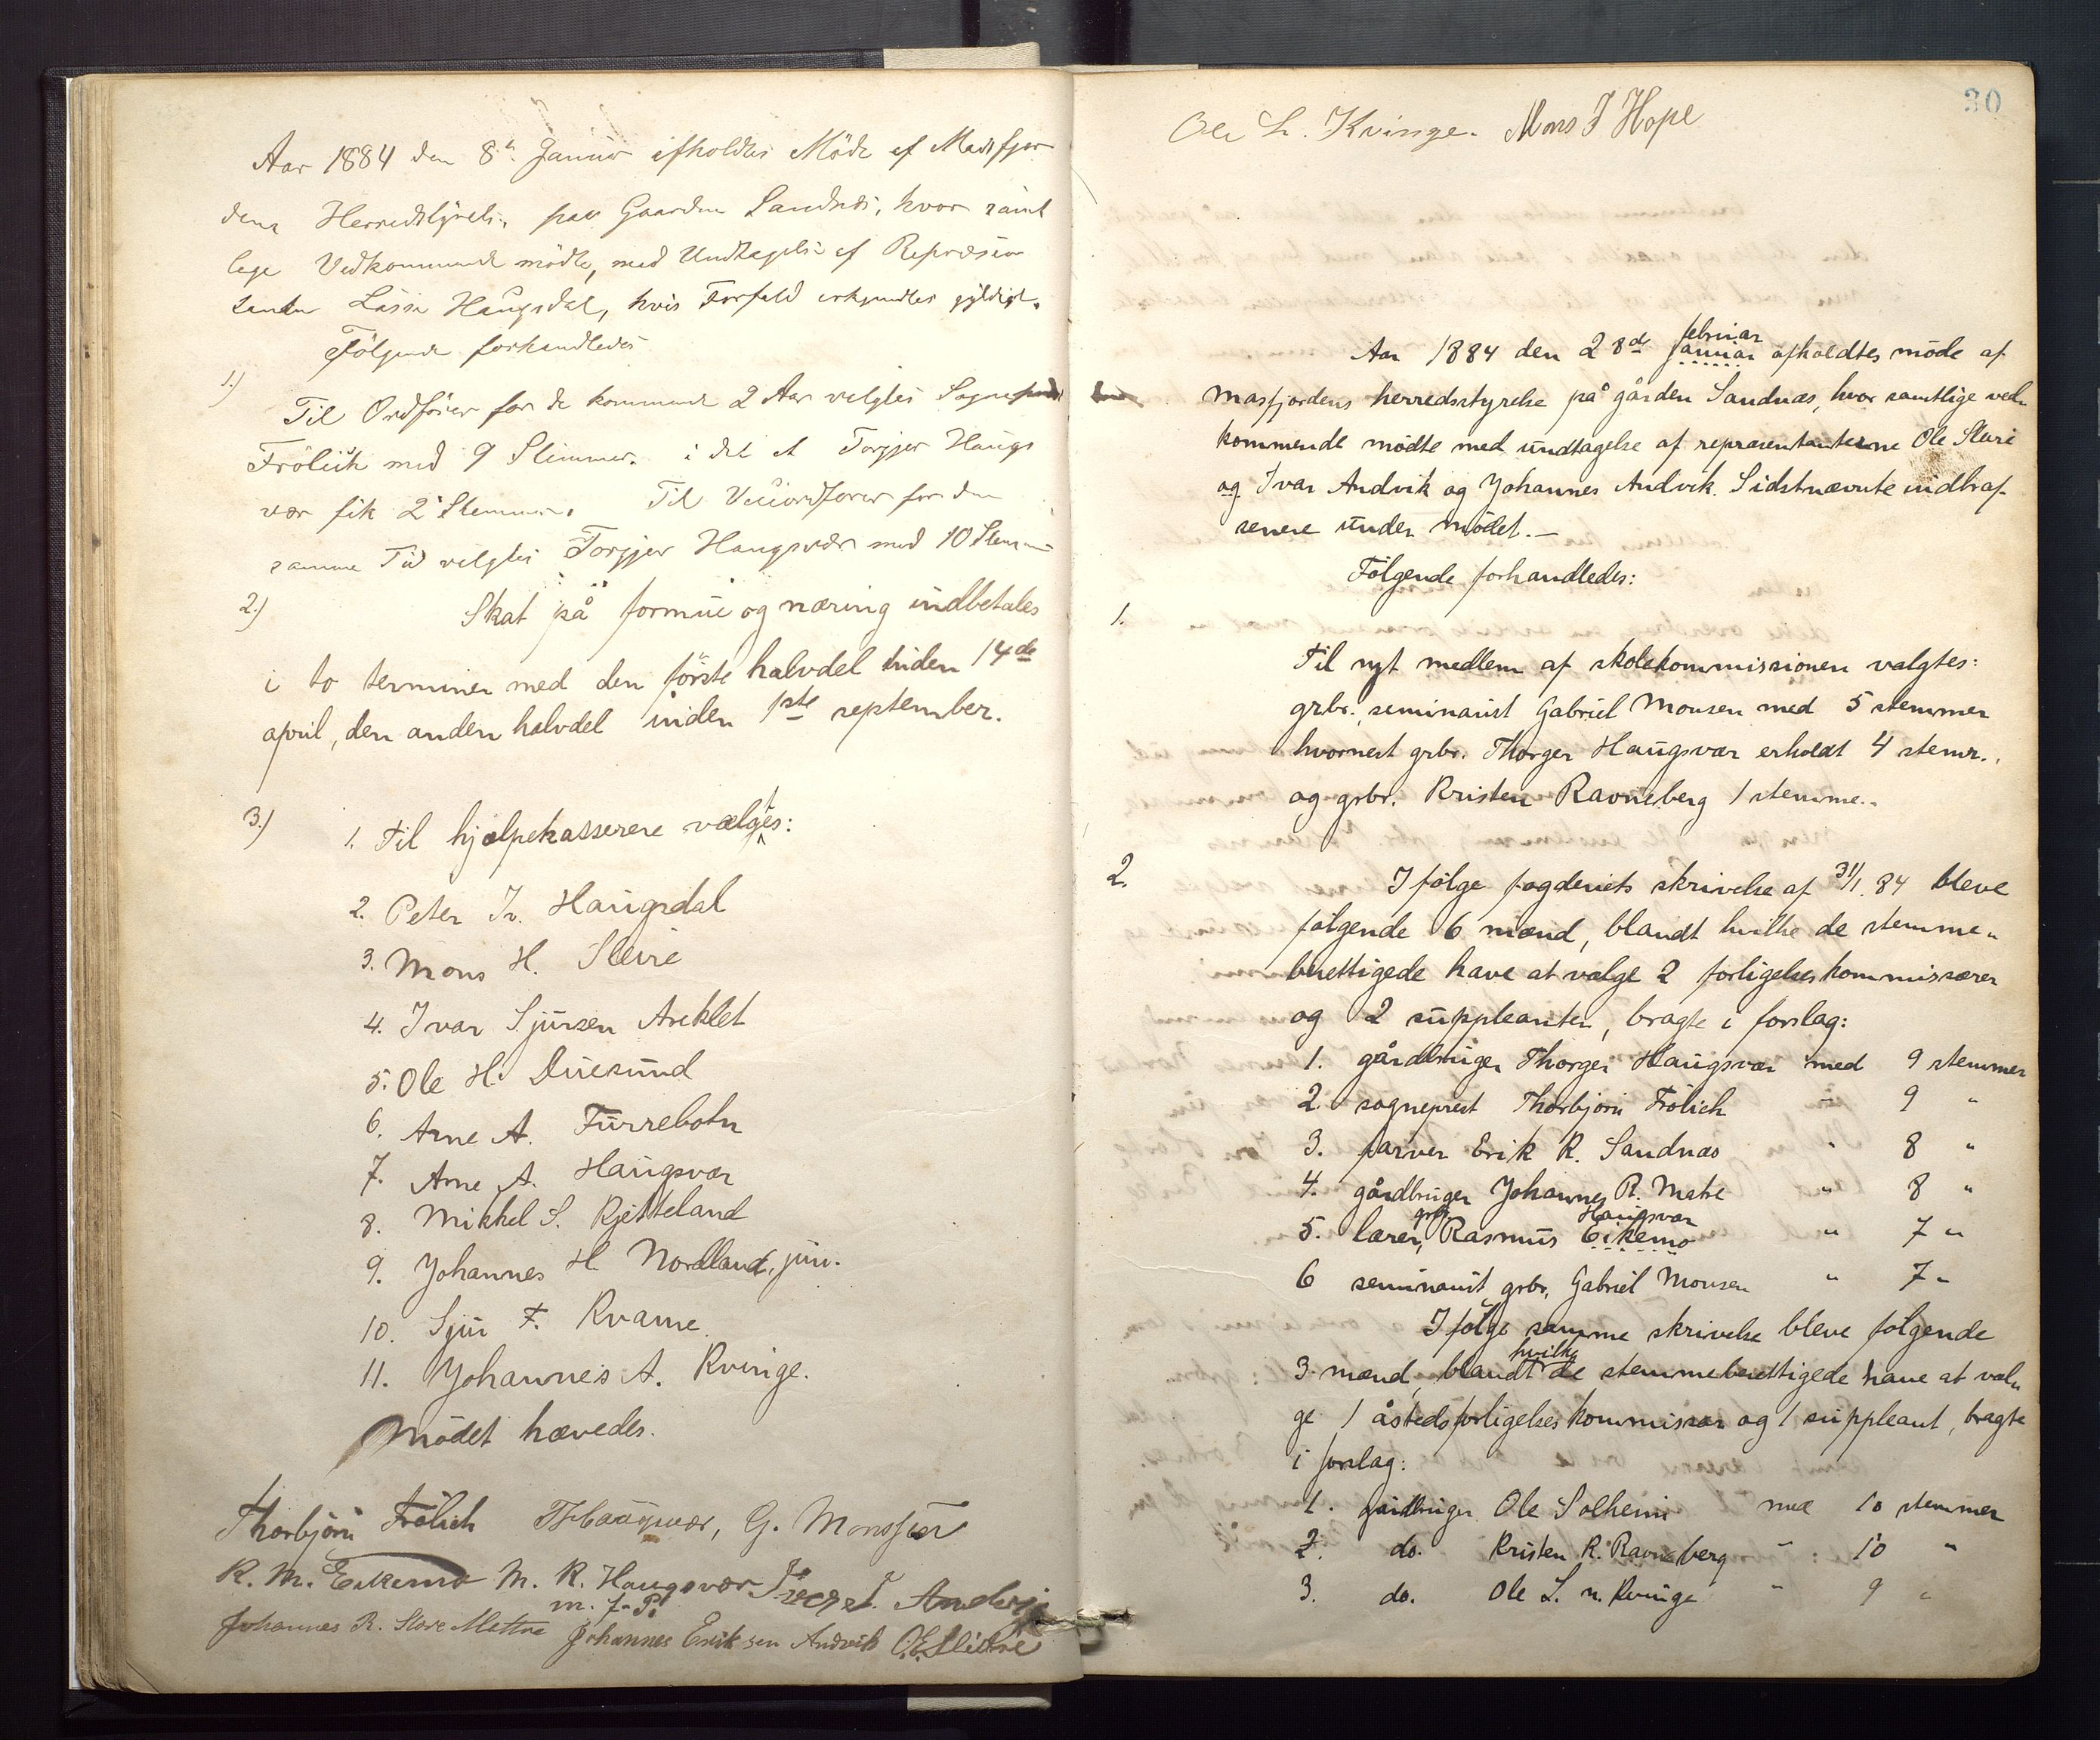 Aar 1884 den 8de Januar afholdtes Möde af Masfjor
dens Herredstyrelse, paa Gaarden Sandnæs, hvor samt
lige Vedkommende mödte, med Undtagelse af Repræsen
tanten Lasse Haugsdal, hvis Forfald erkjendtes gyldigt.
Fölgende forhandledes
1.)
Til Ordförer for de kommende 2 Aar valgtes Sogneprest
Frölich med 9 Stemmer. i det at Torgjer Haugs
vær fik 2 Stemmer. Til Viceordförer for den
samme Tid valgtes Torgjer Haugsvær med 10 Stemmer
2.)
Skat på formue og næring indbetales
i to terminer med den förste halvdel inden 14de
april, den anden halvdel inden 1ste september.
3.)
1. Til hjælpekasserere vælgtes:
2. Peter Iv. Haugsdal
3. Mons H. Sleire
4. Ivar Sjursen Areklet
5. Ole H. Duesund
6. Arne A. Furrebotn
7. Arne A. Haugsvær
8. Mikkel S. Kjetteland
9. Johannes H. Nordland, jun.
10. Sjur F. Kvame
11. Johannes A. Kvinge.
Mödet hævedes.
Thorbjörn Frölich THaugsvær, G. Monssen
R. M. Eikemo M. R. Haugsvær Iver I. Andvi
m. f. P.
Johannes R. Store Mattre Johannes Eriksen Andvik O.E. Sleire
30
Ole L. Kvinge. Mons J Hope
februar
Aar 1884 den 28de januar afholdtes möde af
Masfjordens herredsstyrelse på gården Sandnæs, hvor samtlige ved-
kommende mödte med undtagelse af repræsentanterne Ole Sleire
og Ivar Andvik og Johannes Andvik. Sidstnævnte indtraf
senere under mödet.—
Fölgende forhandledes:
1.
Til nyt medlem af skolekommissionen valgtes:
grbr. seminarist Gabriel Monsen med 5 stemmer
hvornest grbr. Thorger Haugsvær erholdt 4 stemr.,
og grbr. Kristen Ravneberg 1 stemme.-
2.
Ifölge fogderiets skrivelse af 31/1. 84 bleve
fölgende 6 mænd, blandt hvilke de stemme-
berettigede have at vælge 2 forligelseskommissærer
og 2 suppleanter, bragte i forslag:
1. gårdbruger Thorger Haugsvær med 9 stemmer
2. sogneprest Thorbjörn Frölich " 9 "
3. farver Erik R. Sandnæs " 8 "
4. gårdbruger Johannes R. Matre " 8 "
grb. Haugsvær
5. lærer, Rasmus Eikemo " 7 "
6 seminarist, grbr. Gabriel Monsen " 7 "
Ifölge samme skrivelse bleve fölgende
hvilke
3 mænd, blandt de stemmeberettigede have at væl-
ge 1 åstedsforligelseskommissær og 1 suppleant, bragte
i forslag:
1. gårdbruger Ole Solheim med 10 stemmer
2. do. Kristen R. Ravneberg " 10 "
3. do. Ole L. n. Kvinge " 9 "